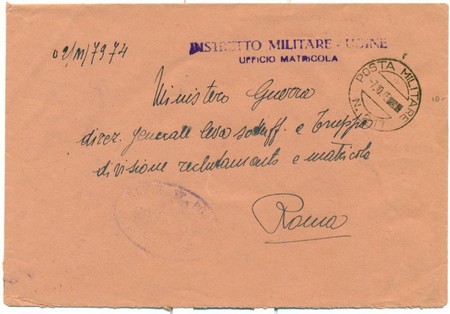 02/M/7974
DISTRETTO MILITARE - UDINE
UFFICIO MATRICOLA
POSTA MILITARE
Ministero Guerra
direz. generale leva sottuff. e Truppa
divisione reclutamento e matricola
Roma
10-